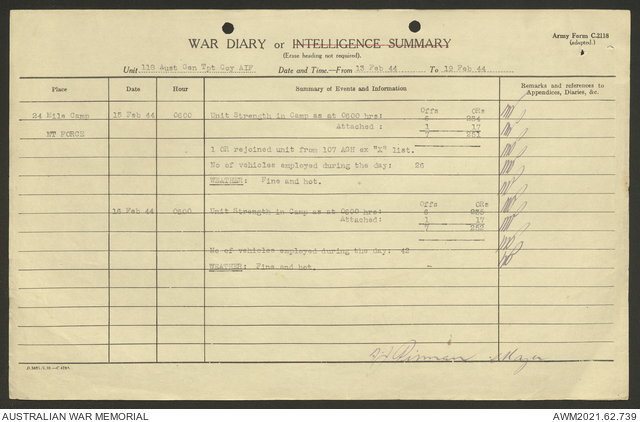 Army Form C.2118
(adapted.)
WAR DIARY or INTELLIGENCE SUMMARY
(Erase heading not required).
Unit 119 Aust Gen Tpt Coy AIF Date and Time.—From 13 Feb 44 To 19 Feb 44
Place Date Hour Summary of Events and Information Remarks and references to Appendices, Diaries, &c.
Offs ORs
24 Mile Camp 15 Feb 44 0600 Unit Strength in Camp as at 0600 hrs: 6 234
Attached: 1 17
NT FORCE 7 251
1 OR rejoined unit from 107 AGH ex "X" list.
No of vehicles employed during the day: 26
WEATHER: Fine and hot.
Offs ORs
16 Feb 44 0600 Unit Strength in Camp as at 0600 hrs: 6 235
Attached: 1 17
7 252
No of vehicles employed during the day: 42
WEATHER: Fine and hot.
Major
AUSTRALIAN WAR MEMORIAL AWM2021.62.739